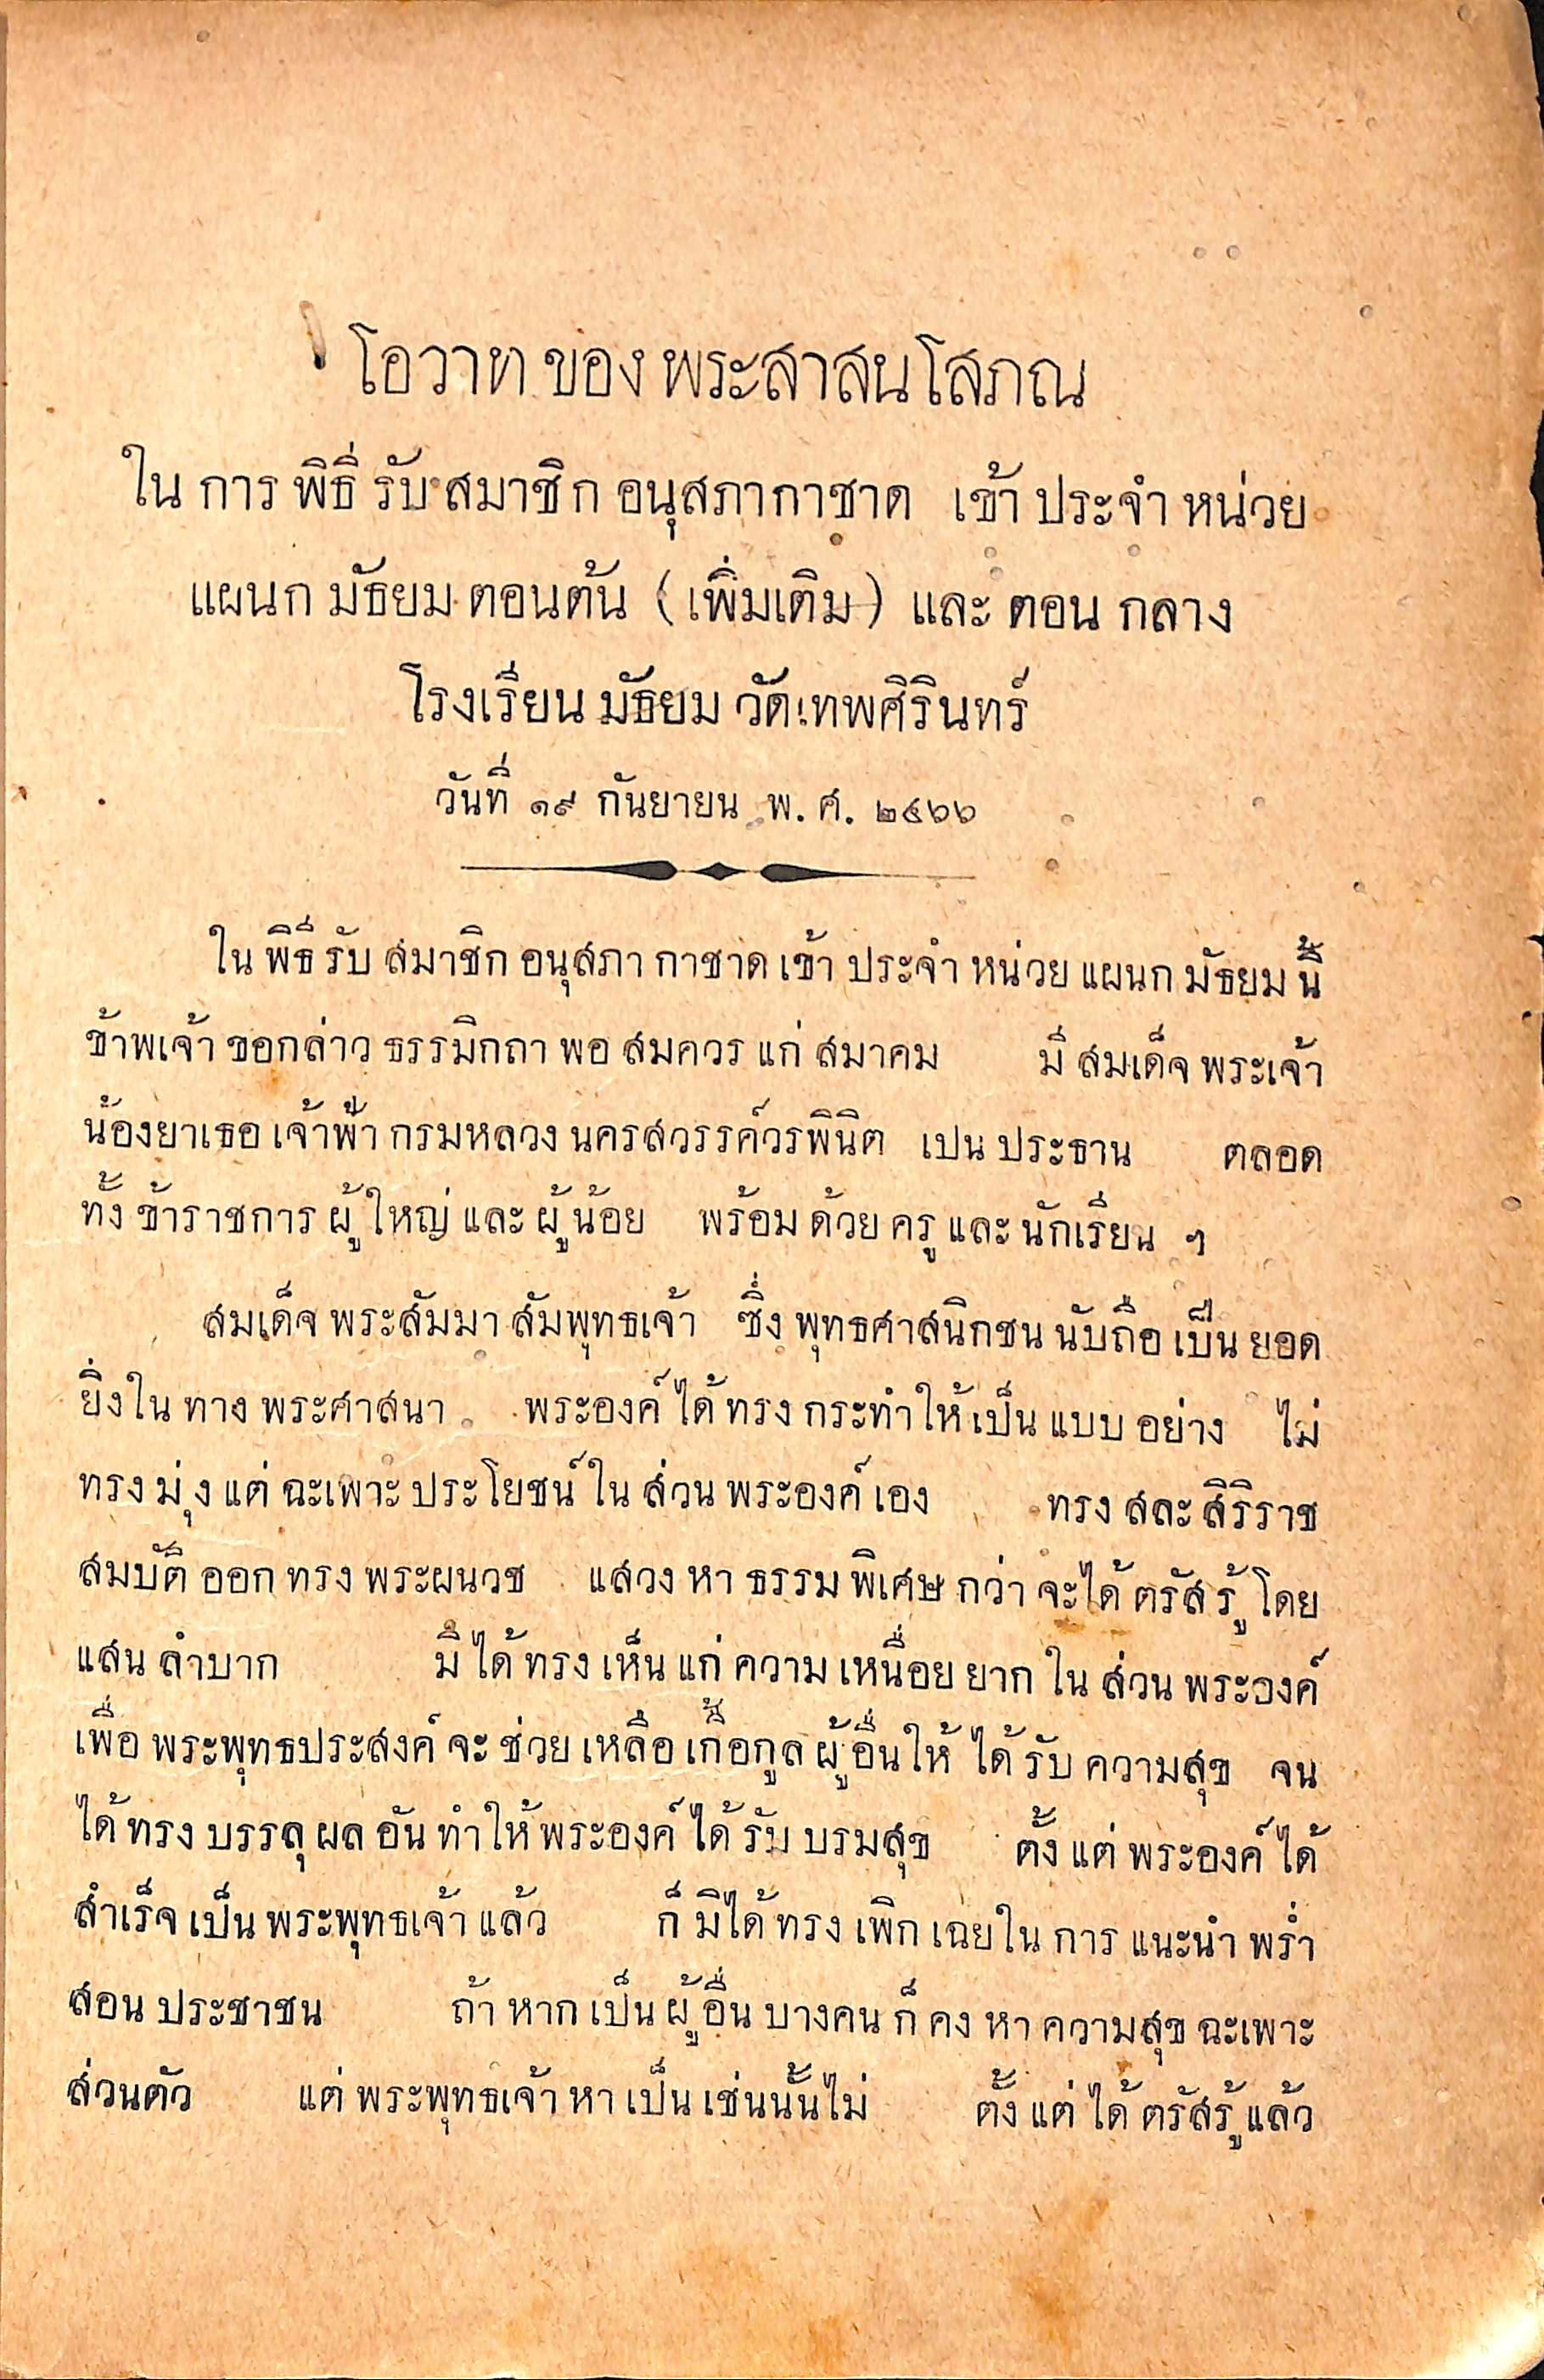 โอวาท ของ พระสาสนโสภณ
ใน การ พิธี รับ สมาชิก อนุสภากาชาด เข้า ประจำ หน่วย
แผนก มัธยม ตอนต้น (เพิ่มเติม) และ ตอน กลาง
โรงเรียน มัธยม วัดเทพศิรินทร์
วันที่ ๑๙ กันยายน พ. ศ. ๒๔๖๖
ใน พิธี รับ สมาชิก อนุสภา กาชาด เข้า ประจำ หน่วย แผนก มัธยม นี้
ข้าพเจ้า ขอกล่าว ธรรมิกถา พอ สมควร แก่ สมาคม มี สมเด็จ พระเจ้า
น้องยาเธอ เจ้าฟ้า กรมหลวง นครสวรรค์วรพินิต เปน ประธาน ตลอด
ทั้ง ข้าราชการ ผู้ ใหญ่ และ ผู้ น้อย พร้อม ด้วย ครู และ นักเรียน ๆ
สมเด็จ พระสัมมา สัมพุทธเจ้า ซึ่ง พุทธศาสนิกชน นับถือ เป็น ยอด
ยิ่งใน ทาง พระศาสนา พระองค์ ได้ ทรง กระทำให้ เป็น แบบ อย่าง ไม่
ทรง มุ่ง แต่ ฉะเพาะ ประโยชน์ ใน ส่วน พระองค์ เอง ทรง สละ สิริราช
สมบัติ ออก ทรง พระผนวช แสวง หา ธรรม พิเศษ กว่า จะได้ ตรัส รู้ โดย
แสน ลำบาก มิ ได้ ทรง เห็น แก่ ความ เหนื่อย ยาก ใน ส่วน พระองค์
เพื่อ พระพุทธประสงค์ จะ ช่วย เหลือ เกื้อกูล ผู้ อื่น ให้ ได้ รับ ความสุข จน
ได้ ทรง บรรลุ ผล อัน ทำให้ พระองค์ ได้ รับ บรมสุข ตั้ง แต่ พระองค์ ได้
สำเร็จ เป็น พระพุทธเจ้า แล้ว ก็ มิได้ ทรง เพิก เฉย ใน การ แนะนำ พร่ำ
สอน ประชาชน ถ้า หาก เป็น ผู้ อื่น บางคน ก็ คง หา ความสุข ฉะเพาะ
ส่วนตัว แต่ พระพุทธเจ้า หา เป็น เช่นนั้นไม่ ตั้ง แต่ ได้ ตรัสรู้ แล้ว